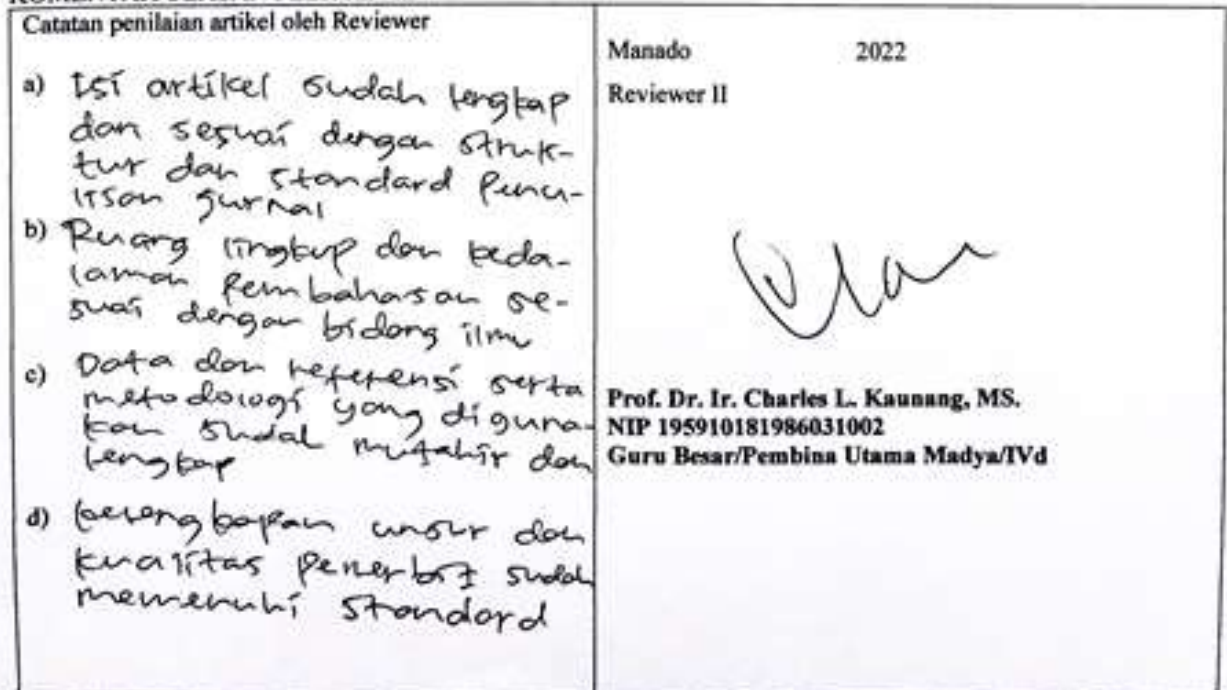 Catatan penilaian artikel oleh Reviewer
a) Isi artikel sudah lengkap
dan sesuai dengan struk-
tur dan standard penu-
lisan jurnal
b) Ruang lingkup dan keda-
laman pembahasan se-
suai dengan bidang ilmu
c) Data dan referensi serta
metodologi yang diguna-
kan sudah mutahir dan
lengkap
d) kelengkapan unsur dan
kualitas penerbit sudah
memenuhi standard
Manado 2022
Reviewer II
Prof. Dr. Ir. Charles L. Kaunang, MS.
NIP 195910181986031002
Guru Besar/Pembina Utama Madya/IVd